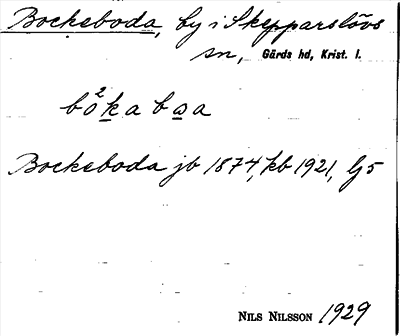 Bockeboda, by i Skepparslövs
sn, Gärds hd, Krist. l.
bo²kabωa
Bockeboda jb 1874, kb 1921, lj5
NILS NILSSON 1929